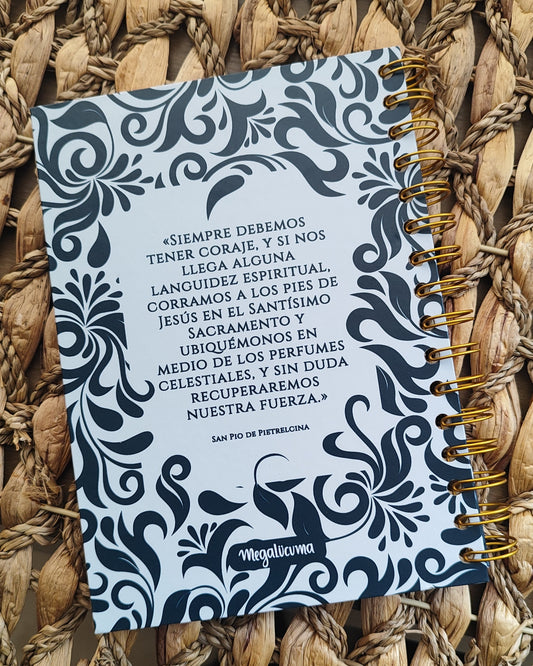 «Siempre debemos
tener coraje, y si nos
llega alguna
languidez espiritual,
corramos a los pies de
Jesús en el Santísimo
Sacramento y
ubiquémonos en
medio de los perfumes
celestiales, y sin duda
recuperaremos
nuestra fuerza.»
San Pio de Pietrelcina
Megalucuma